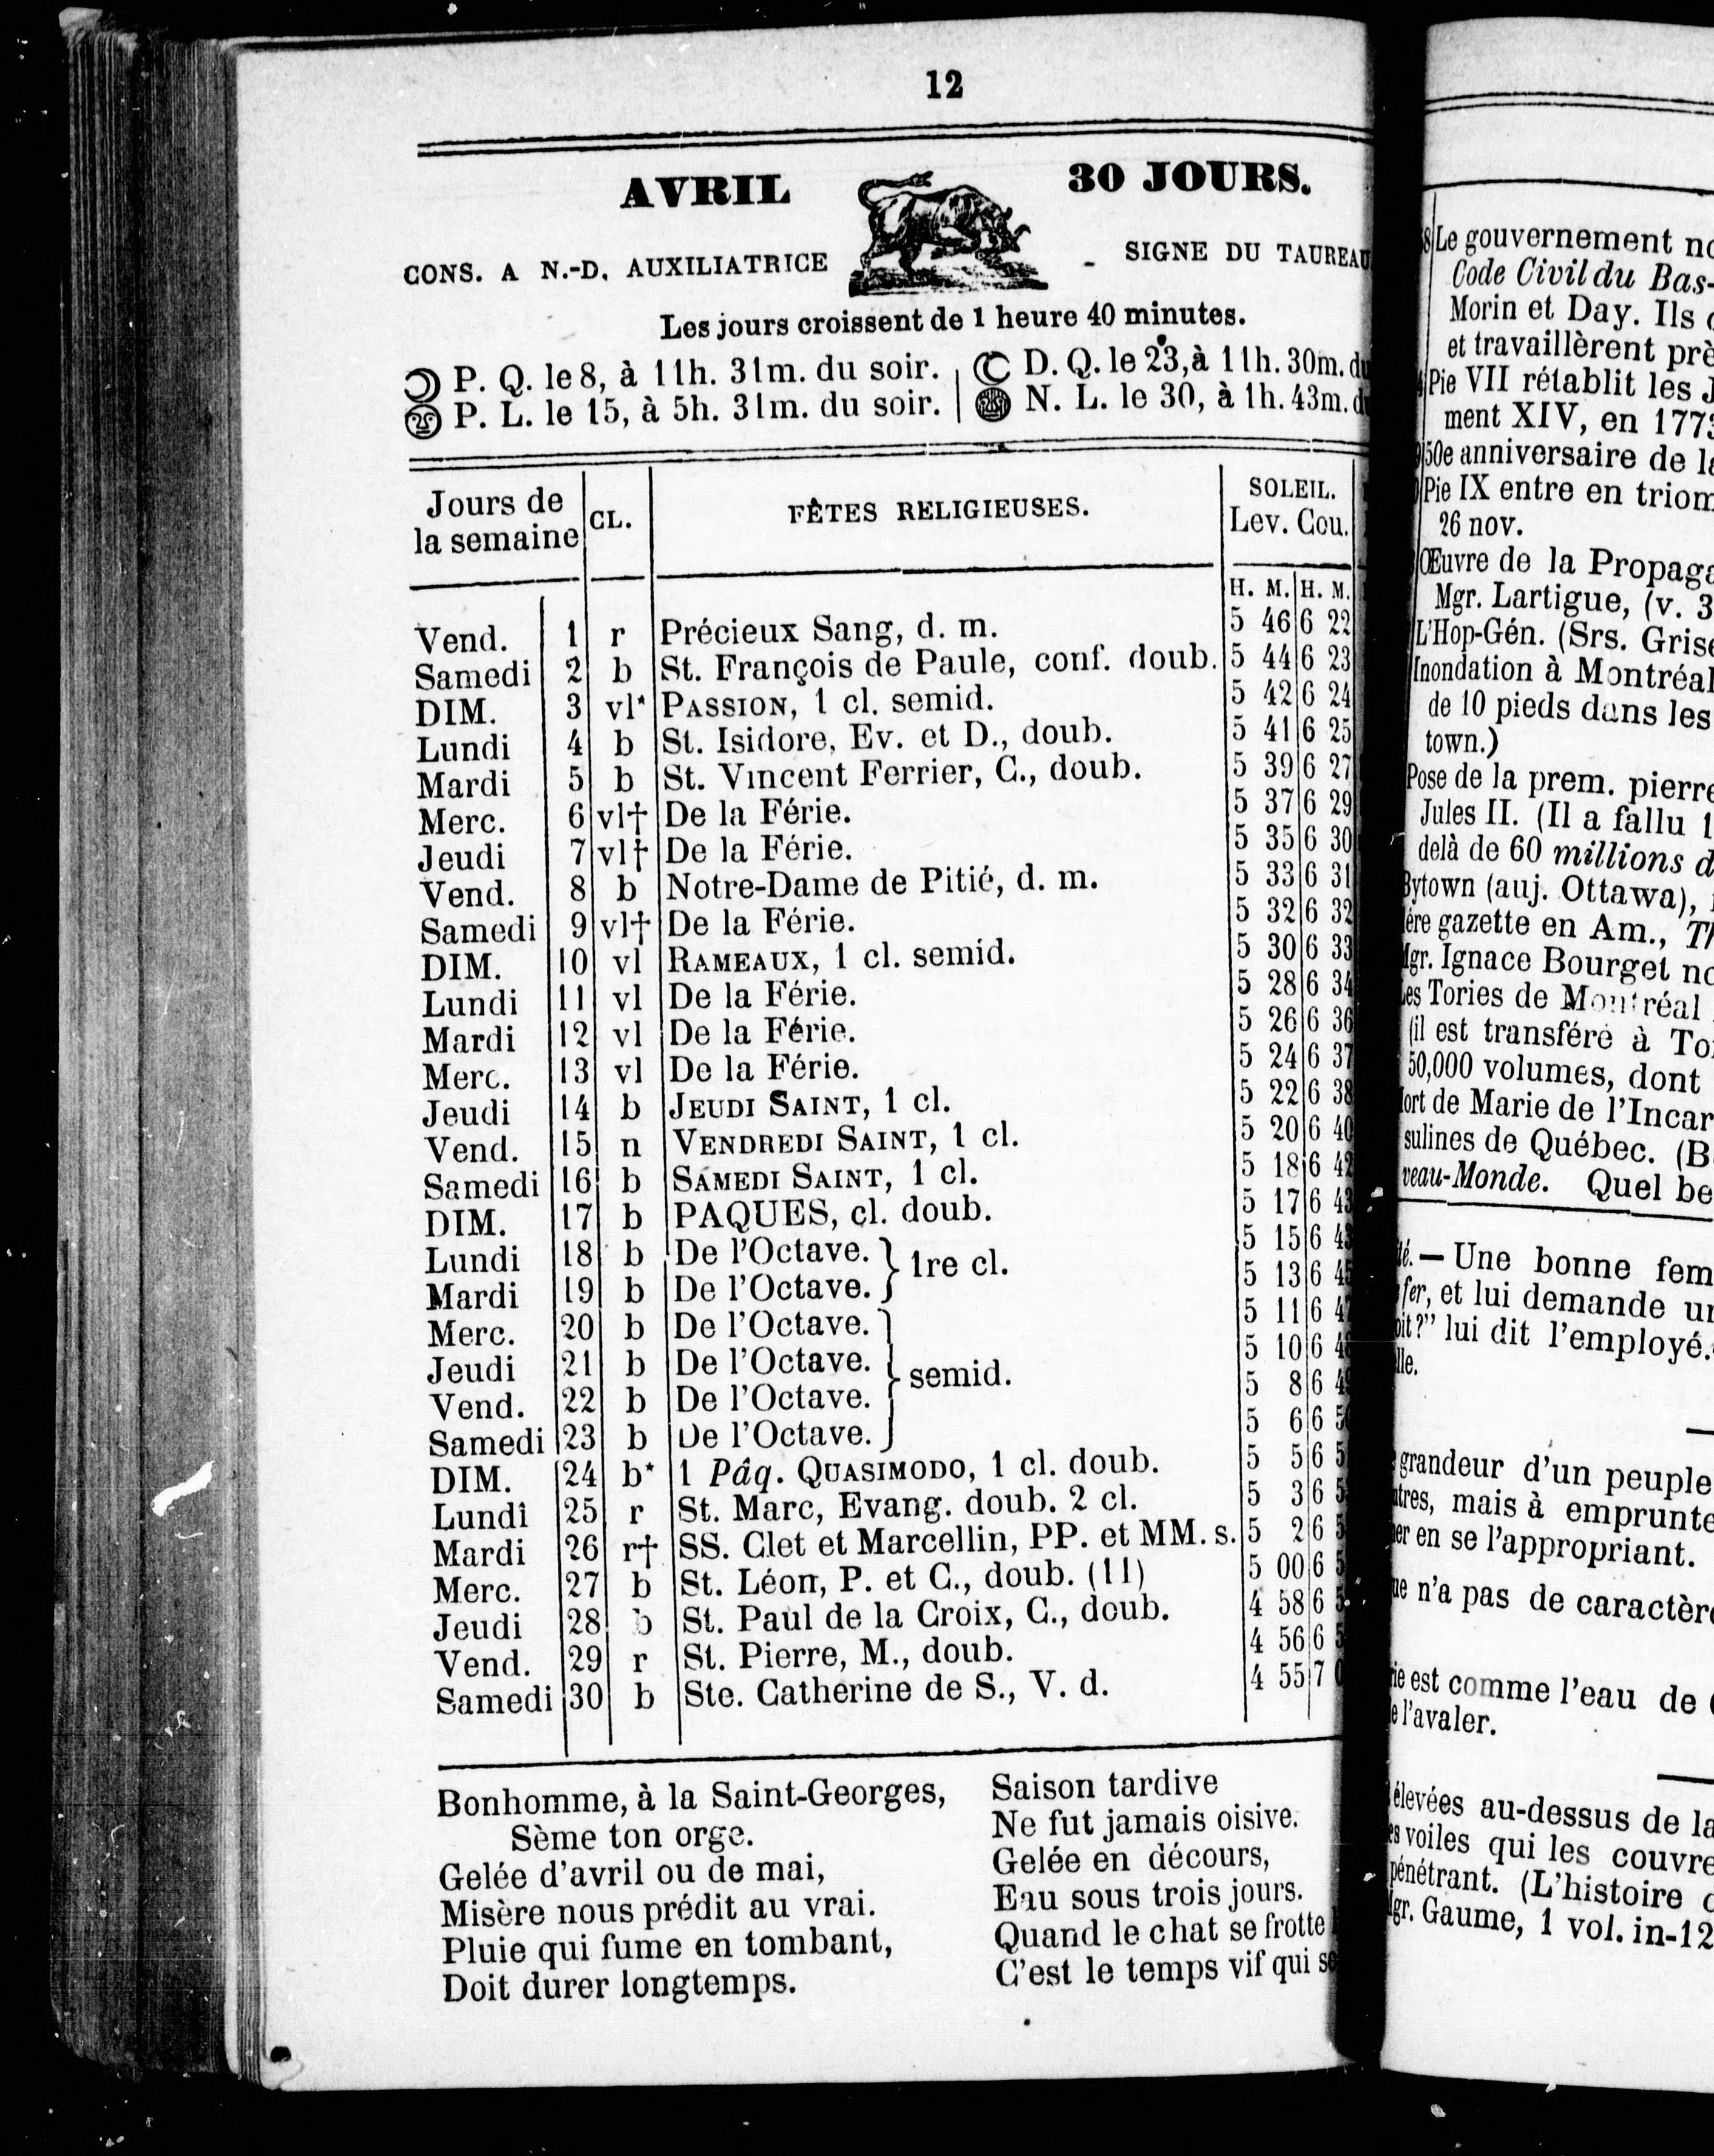 12
AVRIL 30 JOURS.
CONS. A N.-D. AUXILIATRICE - SIGNE DU TAUREAU
Les jours croissent de 1 heure 40 minutes.
P. Q. le 8, à 11h. 31m. du soir. D. Q. le 23, à 11h. 30m. du
P. L. le 15, à 5h. 31m. du soir. N. L. le 30, à 1h. 43m. du
Jours de la semaine CL. FÊTES RELIGIEUSES. SOLEIL. Lev. Cou.
H. M. H. M.
Vend. 1 r Précieux Sang, d. m. 5 46 6 22
Samedi 2 b St. François de Paule, conf. doub. 5 44 6 23
DIM. 3 vl* PASSION, 1 cl. semid. 5 42 6 24
Lundi 4 b St. Isidore, Ev. et D., doub. 5 41 6 25
Mardi 5 b St. Vincent Ferrier, C., doub. 5 39 6 27
Merc. 6 vl† De la Férie. 5 37 6 29
Jeudi 7 vl† De la Férie. 5 35 6 30
Vend. 8 b Notre-Dame de Pitié, d. m. 5 33 6 31
Samedi 9 vl† De la Férie. 5 32 6 32
DIM. 10 vl RAMEAUX, 1 cl. semid. 5 30 6 33
Lundi 11 vl De la Férie. 5 28 6 34
Mardi 12 vl De la Férie. 5 26 6 36
Merc. 13 vl De la Férie. 5 24 6 37
Jeudi 14 b JEUDI SAINT, 1 cl. 5 22 6 38
Vend. 15 n VENDREDI SAINT, 1 cl. 5 20 6 40
Samedi 16 b SAMEDI SAINT, 1 cl. 5 18 6 42
DIM. 17 b PAQUES, cl. doub. 5 17 6 43
Lundi 18 b De l'Octave. } 1re cl. 5 15 6 43
Mardi 19 b De l'Octave. 5 13 6 45
Merc. 20 b De l'Octave. 5 11 6 47
Jeudi 21 b De l'Octave. } semid. 5 10 6 48
Vend. 22 b De l'Octave. 5 8 6 49
Samedi 23 b De l'Octave. 5 6 6
DIM. 24 b* 1 Pâq. QUASIMODO, 1 cl. doub. 5 5 6
Lundi 25 r St. Marc, Evang. doub. 2 cl. 5 3 6
Mardi 26 r† SS. Clet et Marcellin, PP. et MM. s. 5 2 6
Merc. 27 b St. Léon, P. et C., doub. (11) 5 00 6
Jeudi 28 b St. Paul de la Croix, C., doub. 4 58 6
Vend. 29 r St. Pierre, M., doub. 4 56 6
Samedi 30 b Ste. Catherine de S., V. d. 4 55 7
Bonhomme, à la Saint-Georges,
Sème ton orge.
Gelée d'avril ou de mai,
Misère nous prédit au vrai.
Pluie qui fume en tombant,
Doit durer longtemps.
Saison tardive
Ne fut jamais oisive.
Gelée en décours,
Eau sous trois jours.
Quand le chat se frotte
C'est le temps vif qui
Le gouvernement
Code Civil du Bas-
Morin et Day. Ils
et travaillèrent
Pie VII rétablit les
ment XIV, en 1773
50e anniversaire de
Pie IX entre en
26 nov.
Œuvre de la
Mgr. Lartigue, (v. 3
L'Hop-Gén. (Srs.
Inondation à Montréal
de 10 pieds dans les
town.)
Pose de la prem. pierre
Jules II. (Il a fallu
delà de 60 millions
Bytown (auj. Ottawa),
gazette en Am.,
Mgr. Ignace Bourget
Les Tories de Montréal
(il est transféré à
50,000 volumes, dont
Mort de Marie de l'Incar
sulines de Québec.
veau-Monde. Quel
— Une bonne
fer, et lui demande
lui dit l'employé.
grandeur d'un peuple
mais à
en se l'appropriant.
n'a pas de
est comme l'eau de
l'avaler.
élevées au-dessus de
voiles qui les
pénétrant. (L'histoire
Mgr. Gaume, 1 vol. in-12